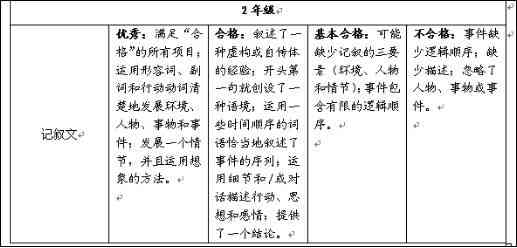 2 年级
优秀：满足“合
格”的所有项目；
运用形容词、副
词和行动动词清
楚地发展环境、
人物、事物和事
件；发展一个情
节，并且运用想
象的方法。
合格：叙述了一
种虚构或自传体
的经验；开头第
一句就创设了一
种语境；运用一
些时间顺序的词
语恰当地叙述了
事件的序列；运
用细节和/或对
话描述行动、思
想和感情；提供
了一个结论。
基本合格：可能
缺少记叙的三要
素（环境、人物
和情节）；事件包
含有限的逻辑顺
序。
不合格：事件缺
少逻辑顺序；缺
少描述；忽略了
人物、事物或事
件。
记叙文